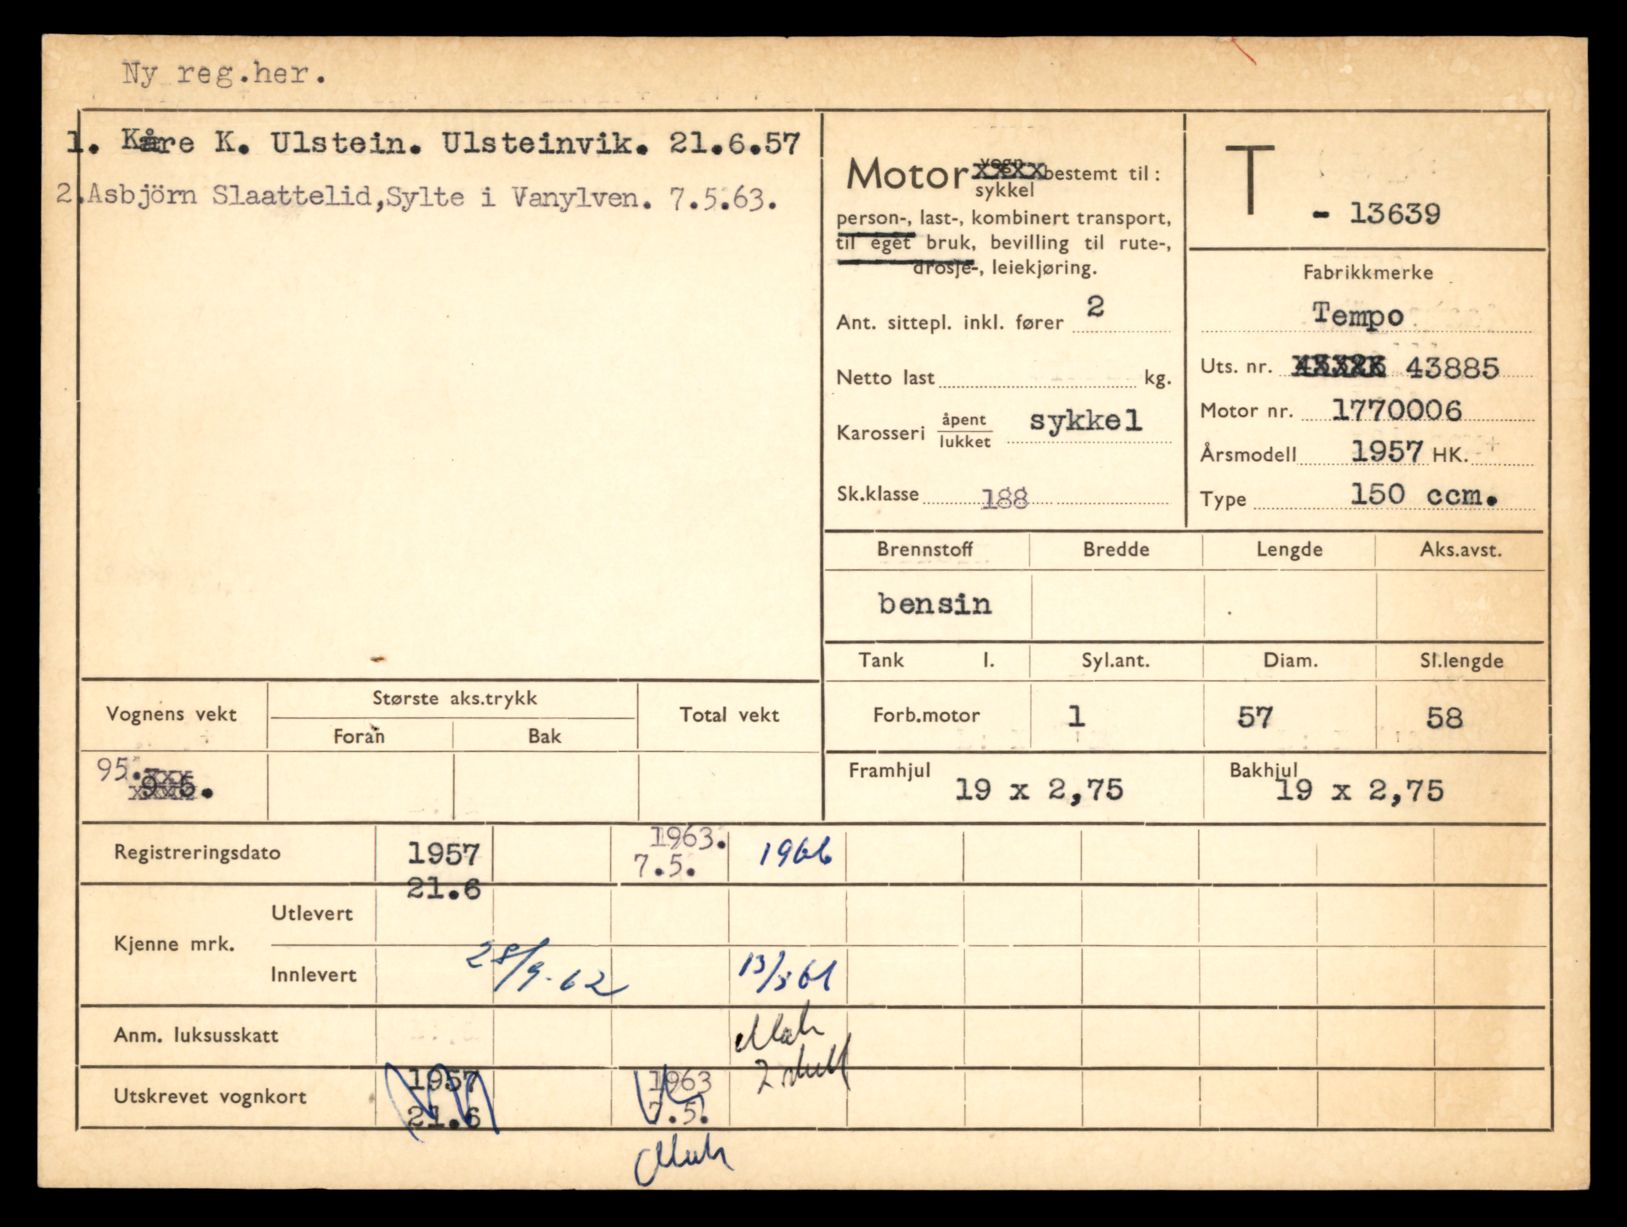 Ny reg.her.
1. Kåre K. Ulstein. Ulsteinvik. 21.6.57
2.Asbjörn Slaattelid,Sylte i Vanylven. 7.5.63.
Motor vogn bestemt til:
sykkel
person-, last-, kombinert transport,
til eget bruk, bevilling til rute-,
drosje-, leiekjøring.
Ant. sittepl. inkl. fører 2
Netto last kg.
Karosseri åpent sykkel
lukket
Sk.klasse 188
T - 13639
Fabrikkmerke
Tempo
Uts. nr. 43885
Motor nr. 1770006
Årsmodell 1957 HK.
Type 150 ccm.
Brennstoff Bredde Lengde Aks.avst.
bensin
Tank l. Syl.ant. Diam. Sl.lengde
Forb.motor 1 57 58
Framhjul 19 x 2,75 Bakhjul 19 x 2,75
Vognens vekt Største aks.trykk Total vekt
Foran Bak
95.
Registreringsdato 1957 21.6 1963. 7.5. 1966
Kjenne mrk. Utlevert
Innlevert 28/9-62
Anm. luksusskatt
Utskrevet vognkort 1957 21.6 1963 7.5.